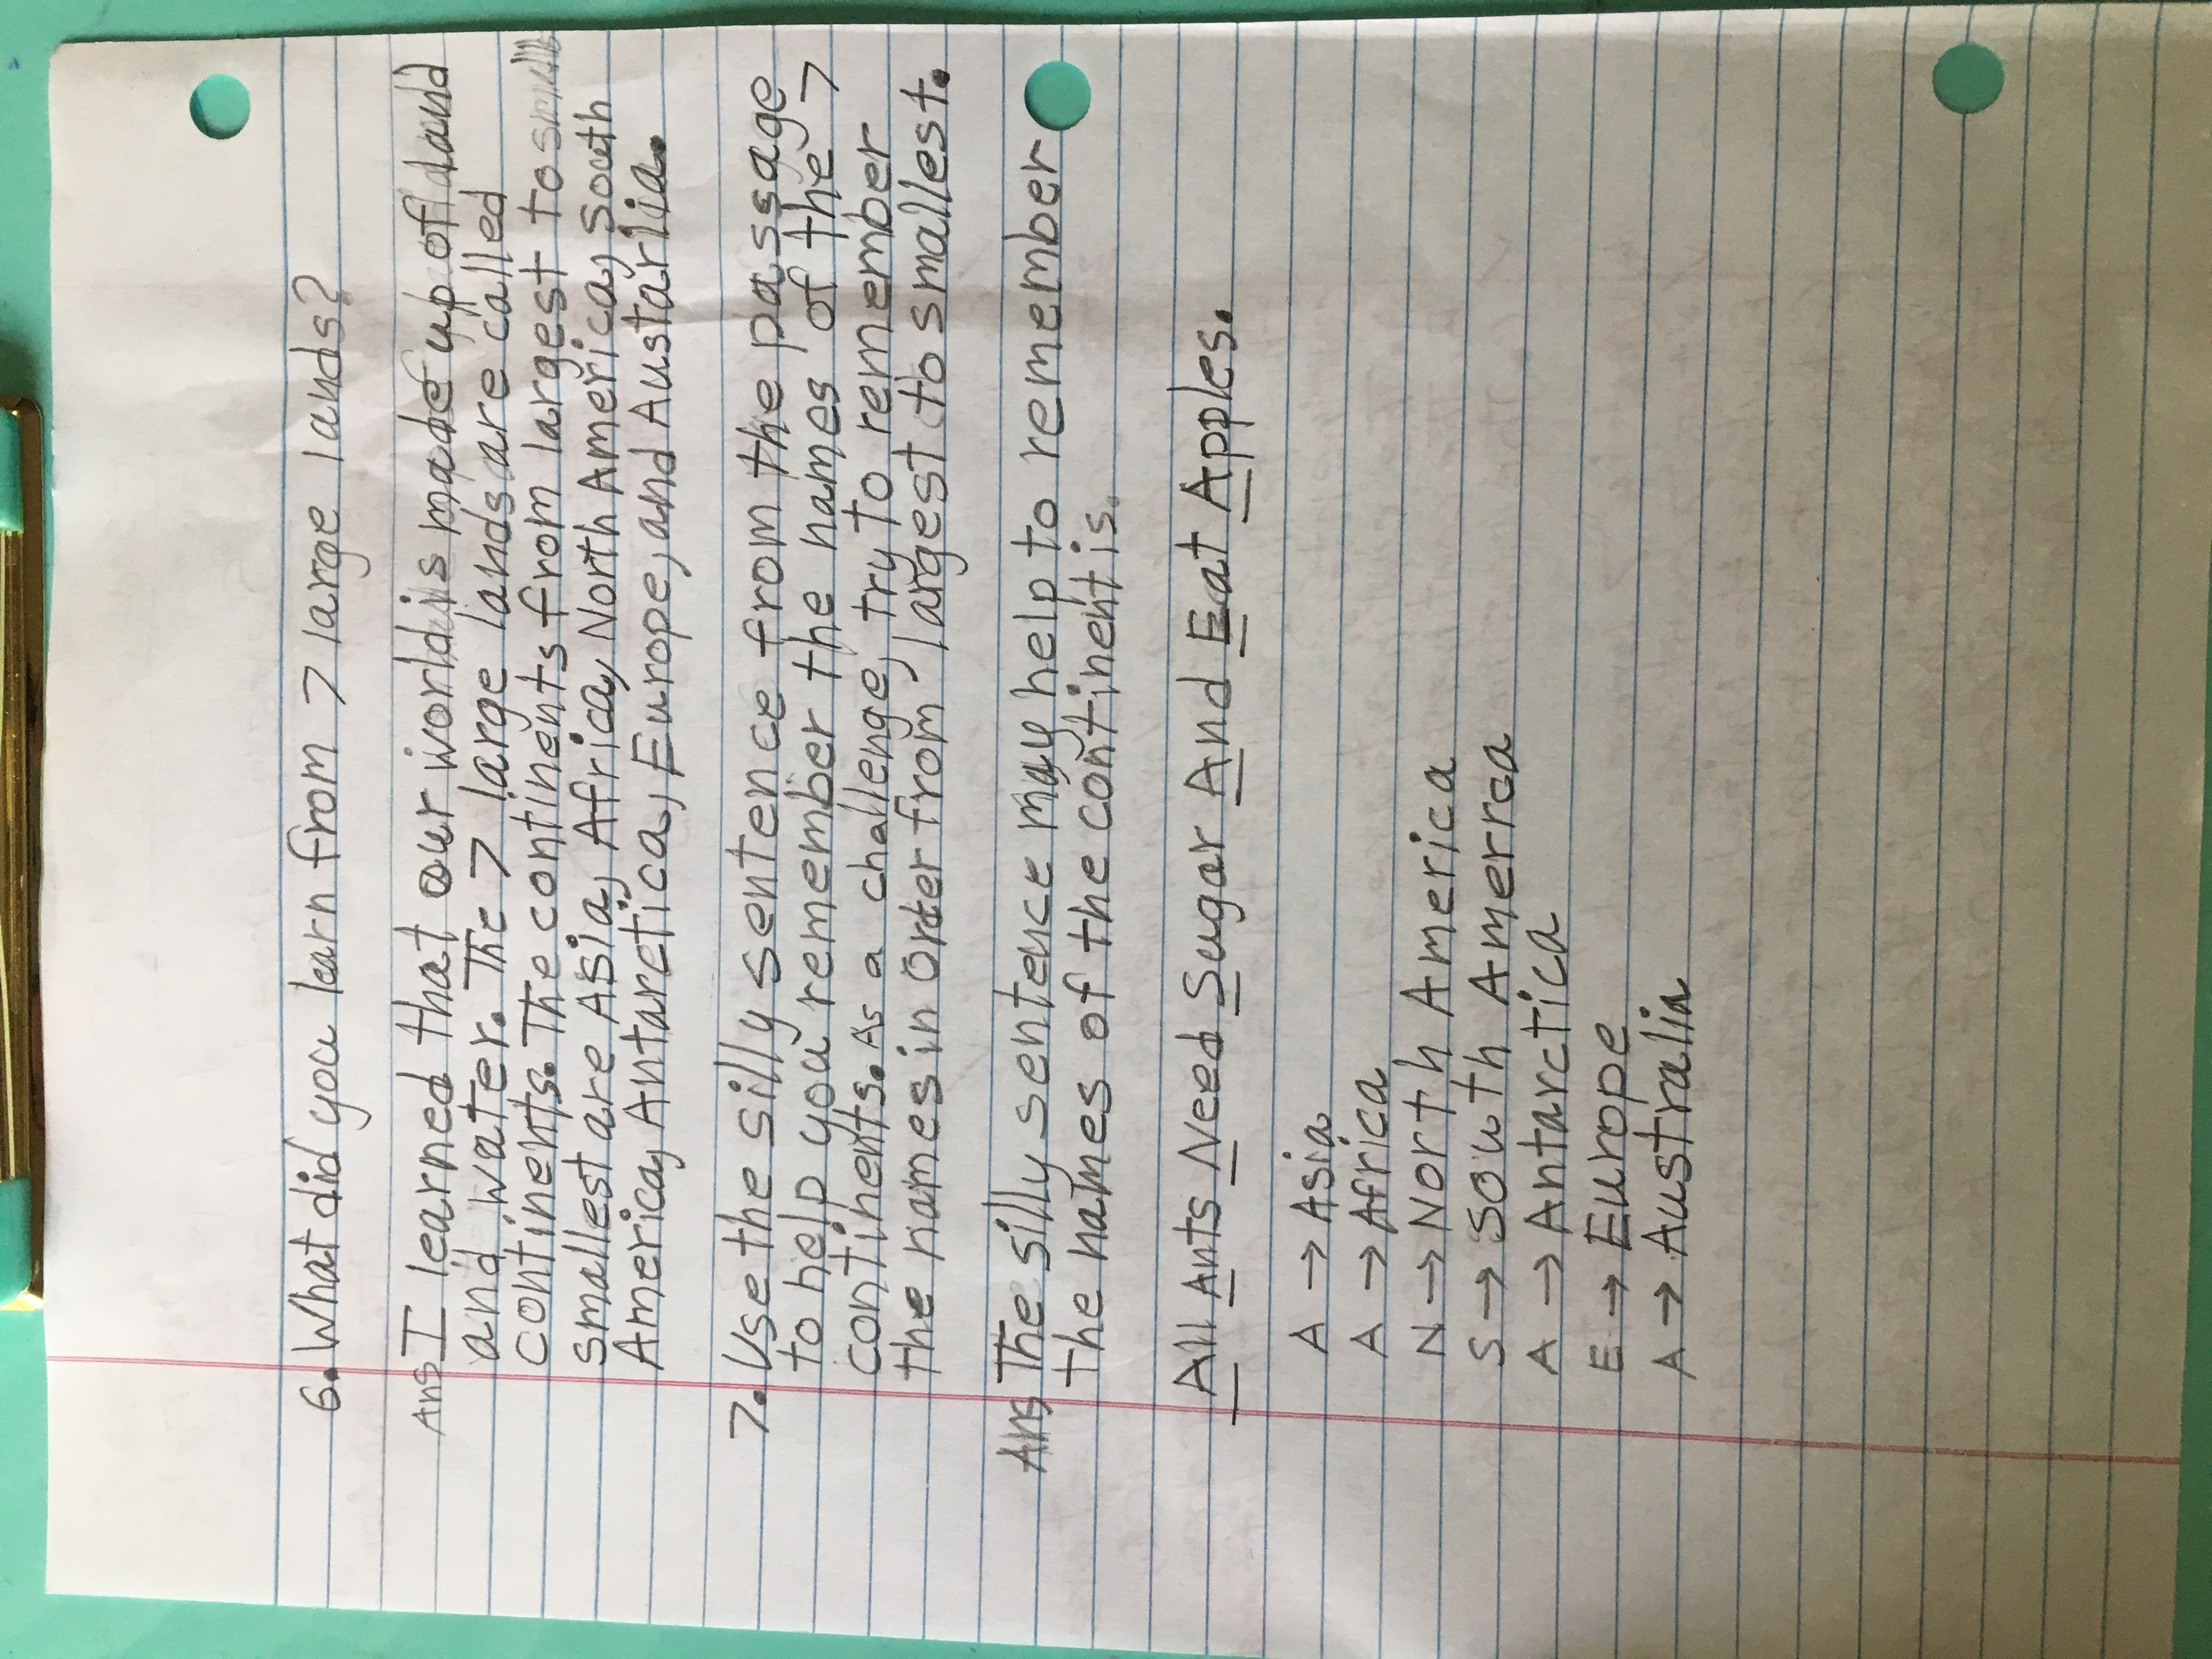 6. What did you learn from 7 large lands?
Ans I learned that our world is made up of land
and water. The 7 large lands are called
continents. The continents from largest to
smallest are Asia, Africa, North America, South
America, Antarctica, Europe, and Austarlia.
7. Use the silly sentence from the passage
to help you remember the names of the 7
continents. As a challenge, try to remember
the names in Order from largest to smallest.
Ans The silly sentence may help to remember
the names of the continent is.
All Ants Need Sugar And Eat Apples.
A → Asia
A → Africa
N → North America
S → South Amerrca
A → Antarctica
E → Europe
A → Australia